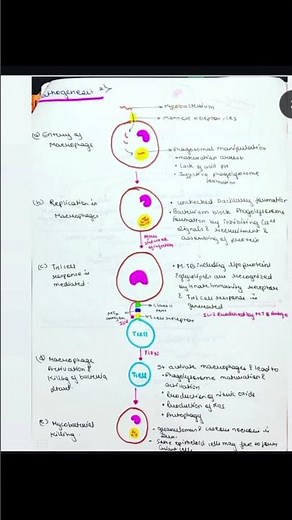 Pathogenesis
Mycobacterium
Mannose receptor, CR3
(a) Entry of
Macrophage
Phagosomal manipulation
- maturation arrest
• Lack of acid pH
• Phagolysosome
formation
(b) Replication in
Macrophages
• unchecked bacillary formation
• Bacterium block Phagolysosome
formation by inhibiting Ca²⁺
signals & Recruitment &
assembling of protein
(c) TH1 cell
response is
mediated
• M.TB including lipoprotein
glycolipids are recognized
by innate immunity receptor
& TH1 cell response is
generated
class II
MHC
T cell receptor
T cell
IFN-γ
(d) Macrophage
Activation &
killing of bacteria
T cell
It activate macrophages & lead to
• Phagolysosome maturation &
activation
• Production of nitric oxide
• Production of ROS
• Autophagy
(e) Mycobacterial
killing
• granuloma & caseous necrosis is
seen.
• Some epithelioid cells may fuse to form
Giant cells